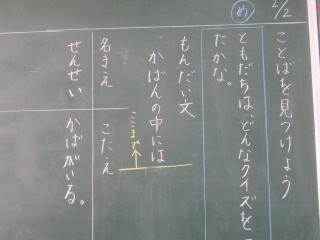 2/2
ことばを見つけよう
め
ともだちは、どんなクイズを
たかな。
もんだい文
かばんの中には
ここまで
名まえ
こたえ
せんせい
かばがいる。